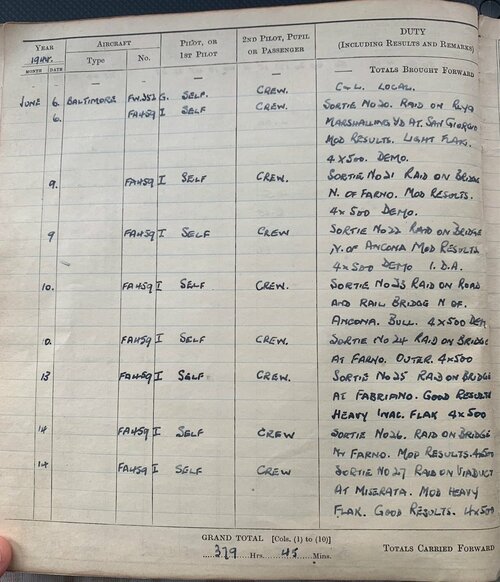 YEAR
1944.
MONTH DATE
AIRCRAFT
Type No.
PILOT, OR
1ST PILOT
2ND PILOT, PUPIL
OR PASSENGER
DUTY
(INCLUDING RESULTS AND REMARKS)
— — — — TOTALS BROUGHT FORWARD
JUNE 6. BALTIMORE FW.352 G. SELF. CREW. C & L. LOCAL.
6. FA459 I SELF CREW. SORTIE No 20. RAID ON
MARSHALLING YD AT SAN GIORGIO
MOD RESULTS. LIGHT FLAK.
4 X 500. DEMO.
9. FA459 I SELF CREW. SORTIE No 21 RAID ON BRIDGE
N. OF FARNO. MOD RESULTS.
4 X 500 DEMO.
9 FA459 I SELF CREW SORTIE No 22 RAID ON BRIDGE
N. OF ANCONA MOD RESULTS
4 X 500 DEMO I.D.A.
10. FA459 I SELF CREW. SORTIE No 23 RAID ON ROAD
AND RAIL BRIDGE N OF.
ANCONA. BULL. 4 X 500 DEM
10. FA459 I SELF CREW. SORTIE No 24 RAID ON BRIDGE
AT FARNO. OUTER. 4 X 500
13 FA459 I SELF CREW. SORTIE No 25 RAID ON BRIDGE
AT FABRIANO. GOOD RESULTS
HEAVY INAC. FLAK 4 X 500
14 FA459 I SELF CREW SORTIE No 26. RAID ON BRIDGE
Nr FARNO. MOD RESULTS. 4x500
14 FA459 I SELF CREW SORTIE No 27 RAID ON VIADUCT
AT MISERATA. MOD HEAVY
FLAK. GOOD RESULTS. 4 X 500
GRAND TOTAL [Cols. (1) to (10)]
379 Hrs. 45 Mins.
TOTALS CARRIED FORWARD